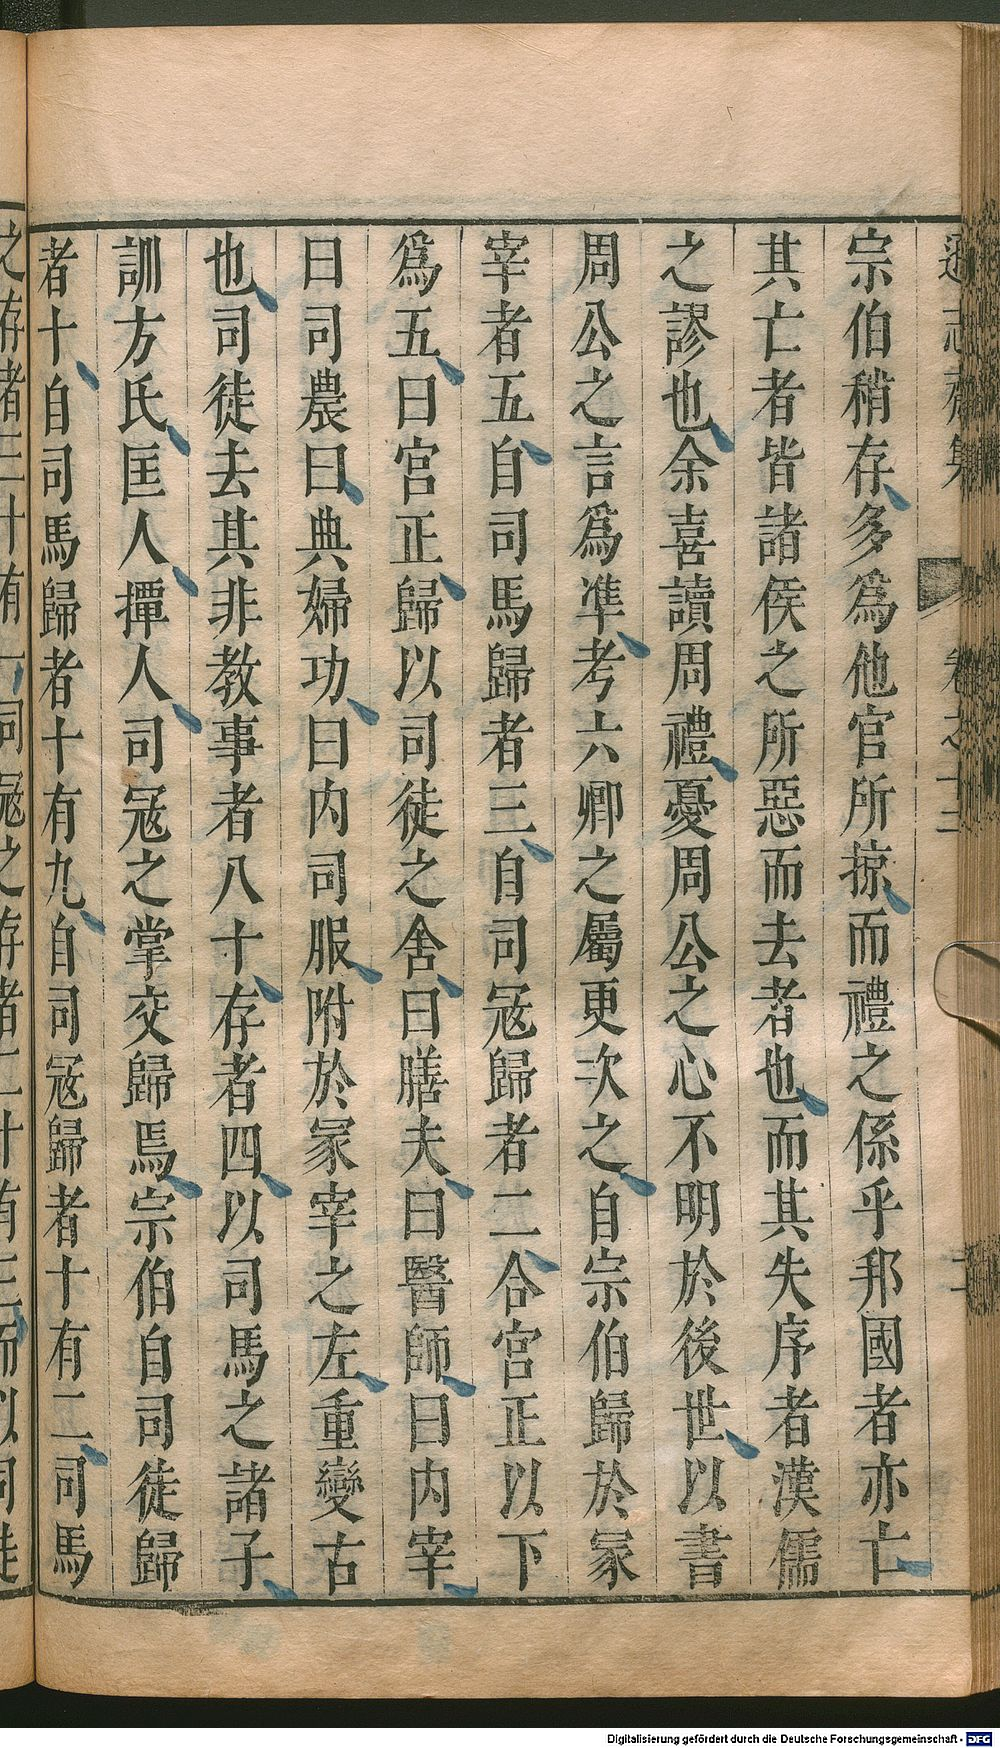 宗伯稍存多為他官所掠而禮之係乎邦國者亦亡
其亡者皆諸侯之所惡而去者也而其失序者漢儒
之謬也余喜讀周禮憂周公之心不明於後世以書
周公之言為準考六卿之屬更次之自宗伯歸於冢
宰者五自司馬歸者三自司冦歸者二合宮正以下
為五曰宮正歸以司徒之舍曰膳夫曰醫師曰内宰
曰司農曰典婦功曰内司服附於冢宰之左重變古
也司徒去其非教事者八十存者四以司馬之諸子
訓方氏匡人撢人司冦之掌交歸焉宗伯自司徒歸
者十自司馬歸者十有九自司冦歸者十有二司馬
之存者三十有一司冦之存者二十有三而以司徒
卷之十二
二
Digitalisierung gefördert durch die Deutsche Forschungsgemeinschaft - DFG